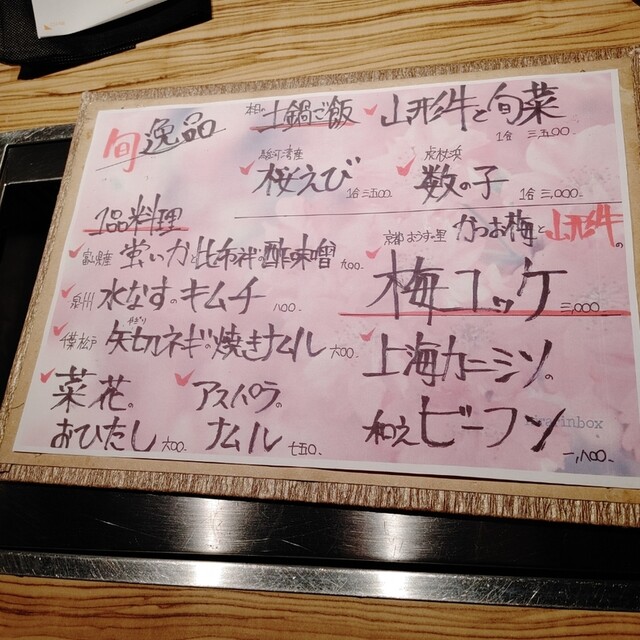 旬逸品
土鍋ご飯
山形牛と旬菜
1合 三五〇〇.
駿河湾産
桜えび
1合 三五〇〇.
数の子
1合 三,〇〇〇.
1品料理
富山県産 蛍いかと比布祥の酢味噌 九〇〇.
泉州 水なすのキムチ 八〇〇.
千葉松戸 矢切ネギの焼きナムル 六〇〇.
やぎり
菜花の
おひたし 六〇〇.
アスパラの
ナムル 七五〇.
京都おうすの里 かつお梅と山形牛の
梅ユッケ 三,〇〇〇
上海カニミソの
和えビーフン
一,八〇〇.